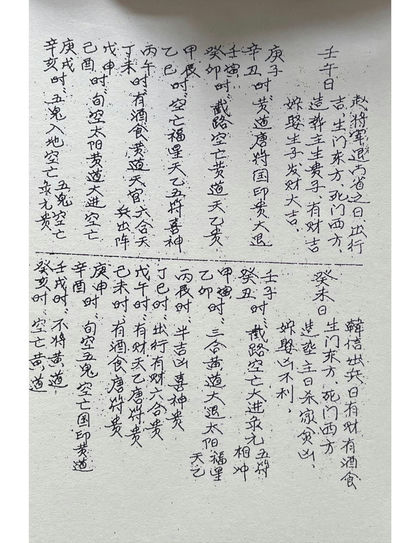 壬午日
赵将军退兵省之日,出行
吉,生门东方,死门西方,
造葬主生贵子,有财吉
嫁娶生子发财大吉。
庚子时,黄道唐符国印贵大退
辛丑时,
壬寅时,截路空亡黄道天乙贵
癸卯时,
甲辰时,空亡福星天乙五符喜神
乙巳时,
丙午时,有酒食黄道天官六合天兵出阵
丁未时,
戊申时,旬空太阳黄道大进空亡
己酉时,
庚戌时,五鬼空亡
辛亥时,五鬼入地空亡
癸未日
韓信出兵日有财有酒食
生门东方,死门西方
造葬主日杀家贫凶,
嫁娶凶不利,
壬子时,截路空亡大进
癸丑时,相冲
甲寅时,三合黄道大退太阳福星天乙
乙卯时,
丙辰时,半吉凶喜神贵
丁巳时,出行有财六合贵
戊午时,有财天乙唐符贵
己未时,有酒食唐符贵
庚申时,旬空五鬼空亡国印黄道
辛酉时,
壬戌时,不将黄道
癸亥时,空亡黄道